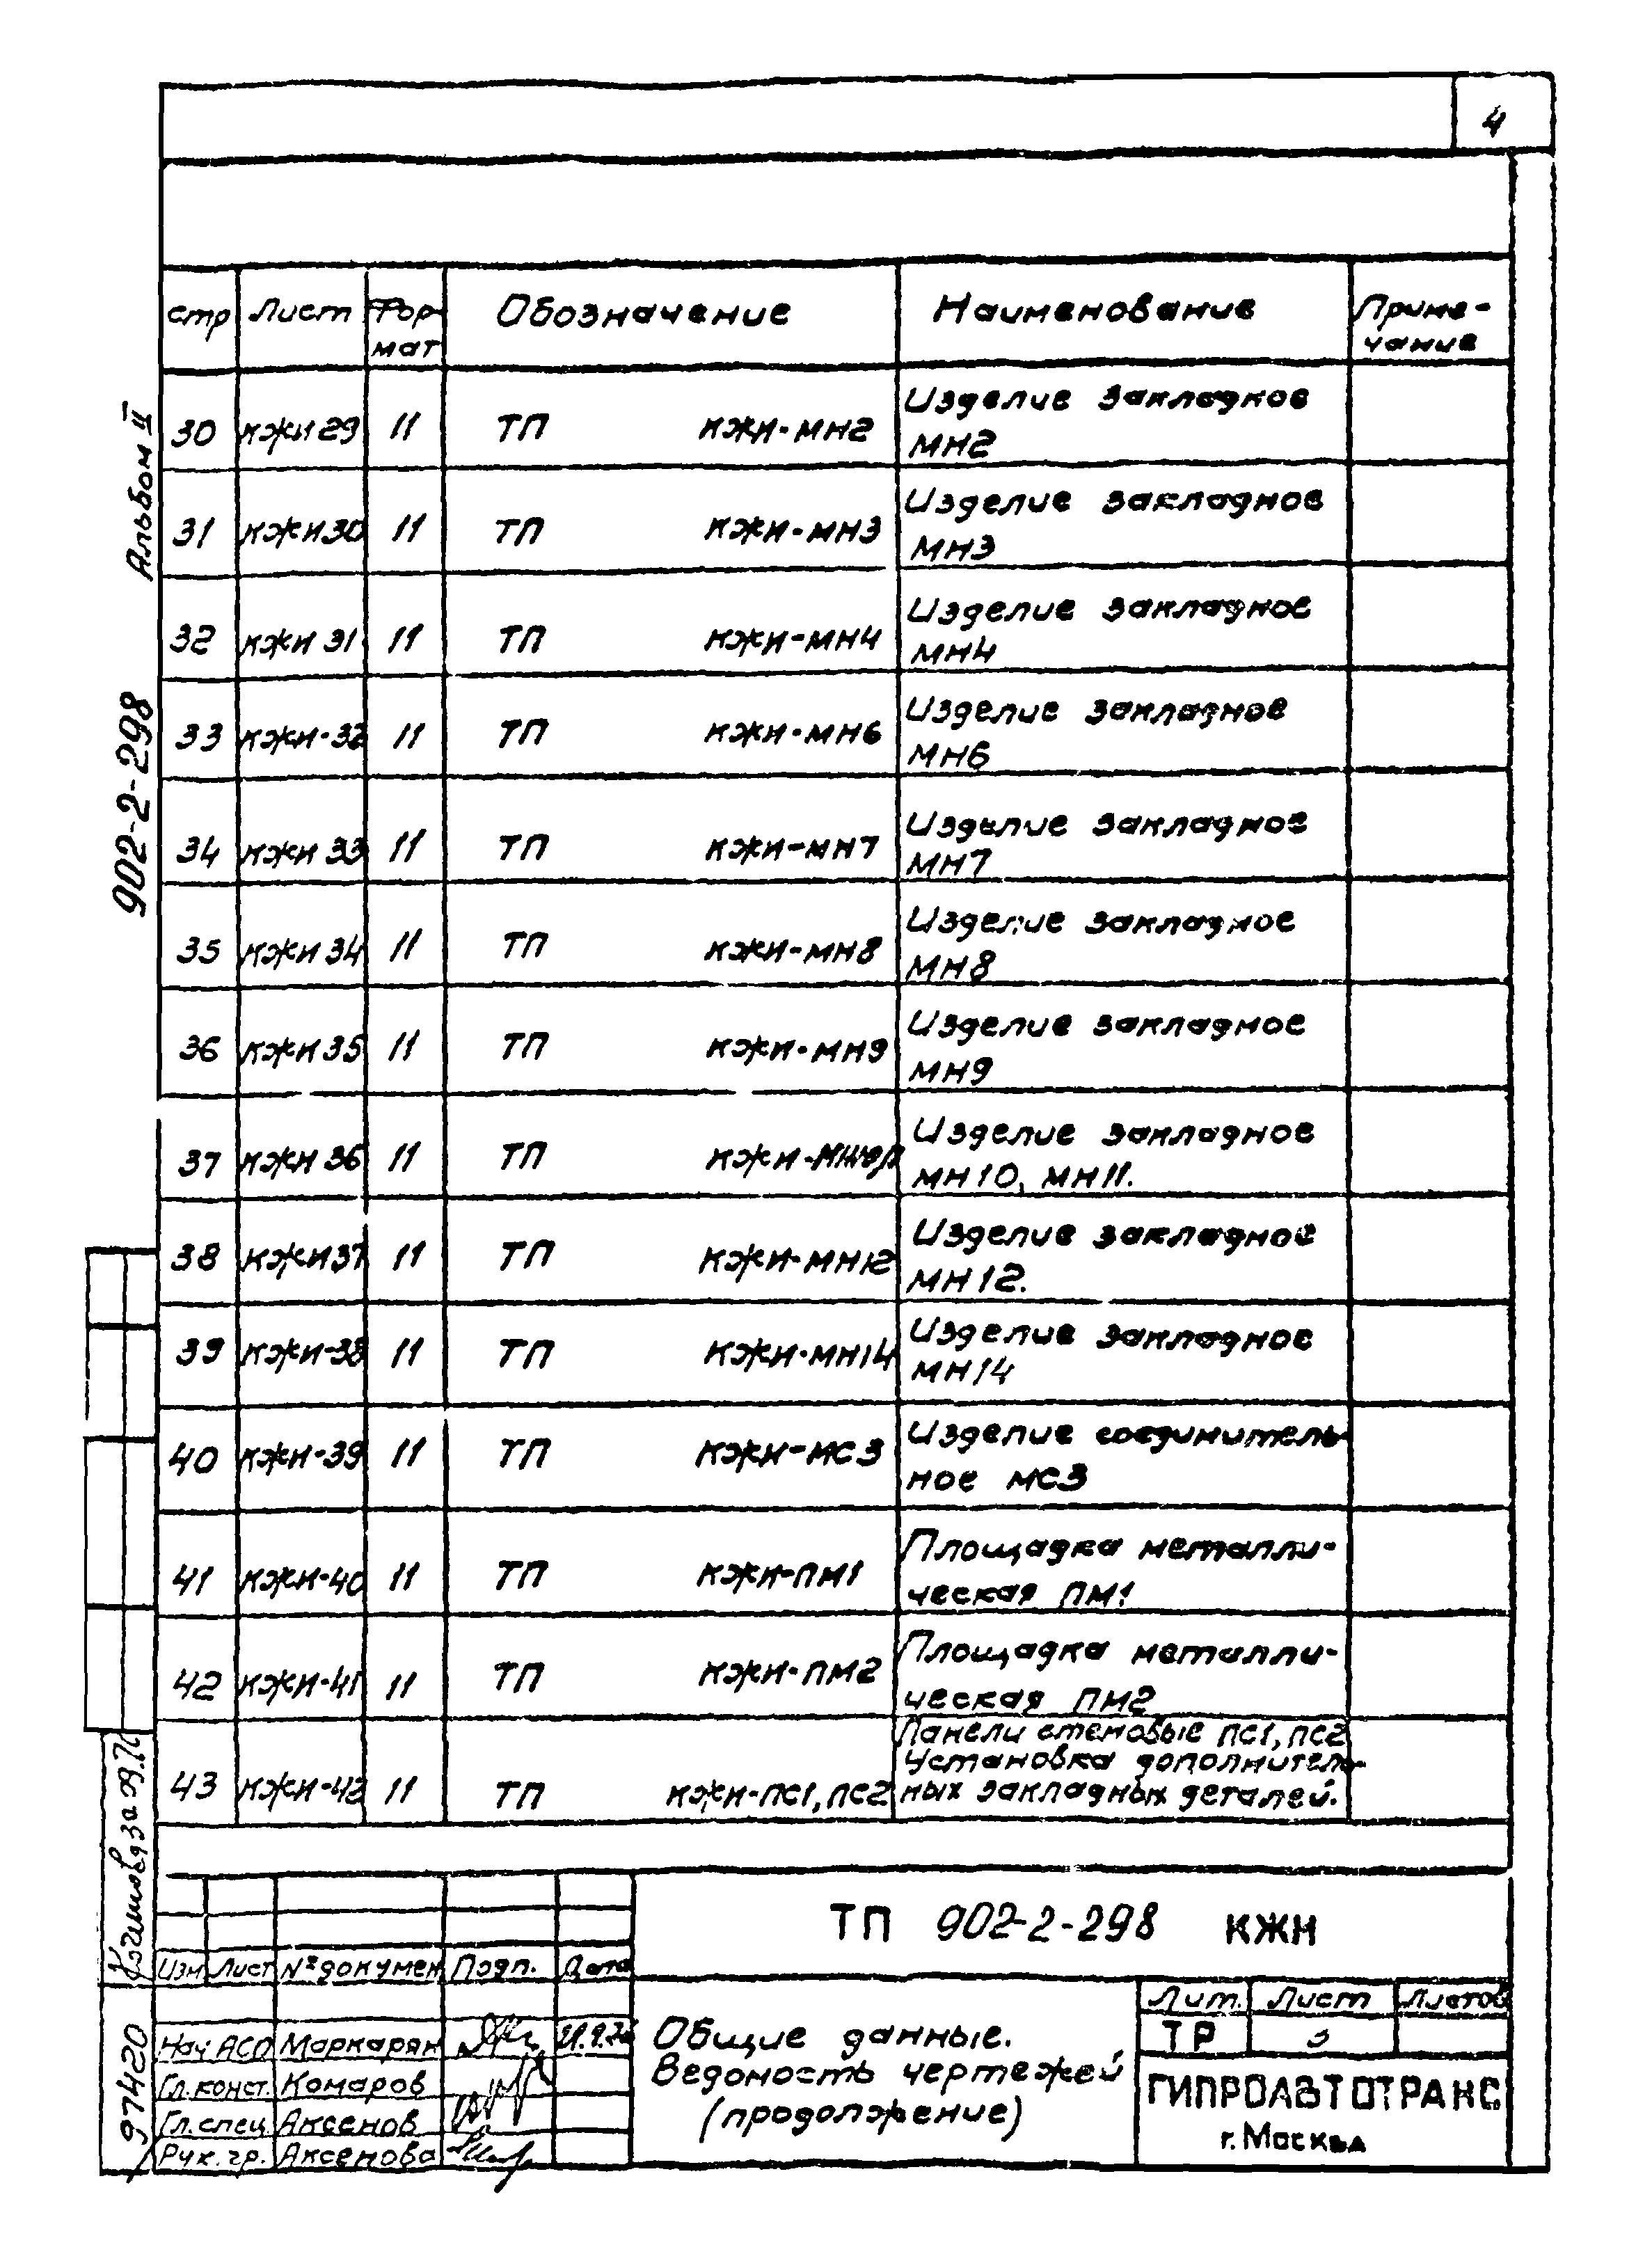 4
стр Лист Фор- Обозначение Наименование Приме-
мат чание
Изделие закладное
30 КЖИ 29 11 ТП КЖИ-МН2
МН2
Изделие закладное
31 КЖИ 30 11 ТП КЖИ-МН3
МН3
Изделие закладное
32 КЖИ 31 11 ТП КЖИ-МН4
МН4
Изделие закладное
33 КЖИ-32 11 ТП КЖИ-МН6
МН6
Изделие закладное
34 КЖИ 33 11 ТП КЖИ-МН7
МН7
Изделие закладное
35 КЖИ 34 11 ТП КЖИ-МН8
МН8
Изделие закладное
36 КЖИ 35 11 ТП КЖИ-МН9
МН9
Изделие закладное
37 КЖИ 36 11 ТП
МН10, МН11.
Изделие закладное
38 КЖИ 37 11 ТП КЖИ-МН12
МН12.
Изделие закладное
39 КЖИ-38 11 ТП КЖИ-МН14
МН14
Изделие соединитель-
40 КЖИ-39 11 ТП КЖИ-МС3
ное МС3
Площадка металли-
41 КЖИ-40 11 ТП КЖИ-ПМ1
ческая ПМ1
Площадка металли-
42 КЖИ-41 11 ТП КЖИ-ПМ2
ческая ПМ2
Панели стеновые ПС1, ПС2
Установка дополнитель-
43 КЖИ-42 11 ТП КЖИ-ПС1, ПС2 ных закладных деталей.
Альбом II
902-2-298
97420
ТП 902-2-298 КЖИ
Изм Лист № докумен Подп. Дата
Лит. Лист Листов
ТР 3
Нач АСО Маркарян
Гл. конст. Комаров
Гл. спец. Аксенов
Рук. гр. Аксенова
Общие данные.
Ведомость чертежей
(продолжение)
ГИПРОАВТОТРАНС
г. Москва